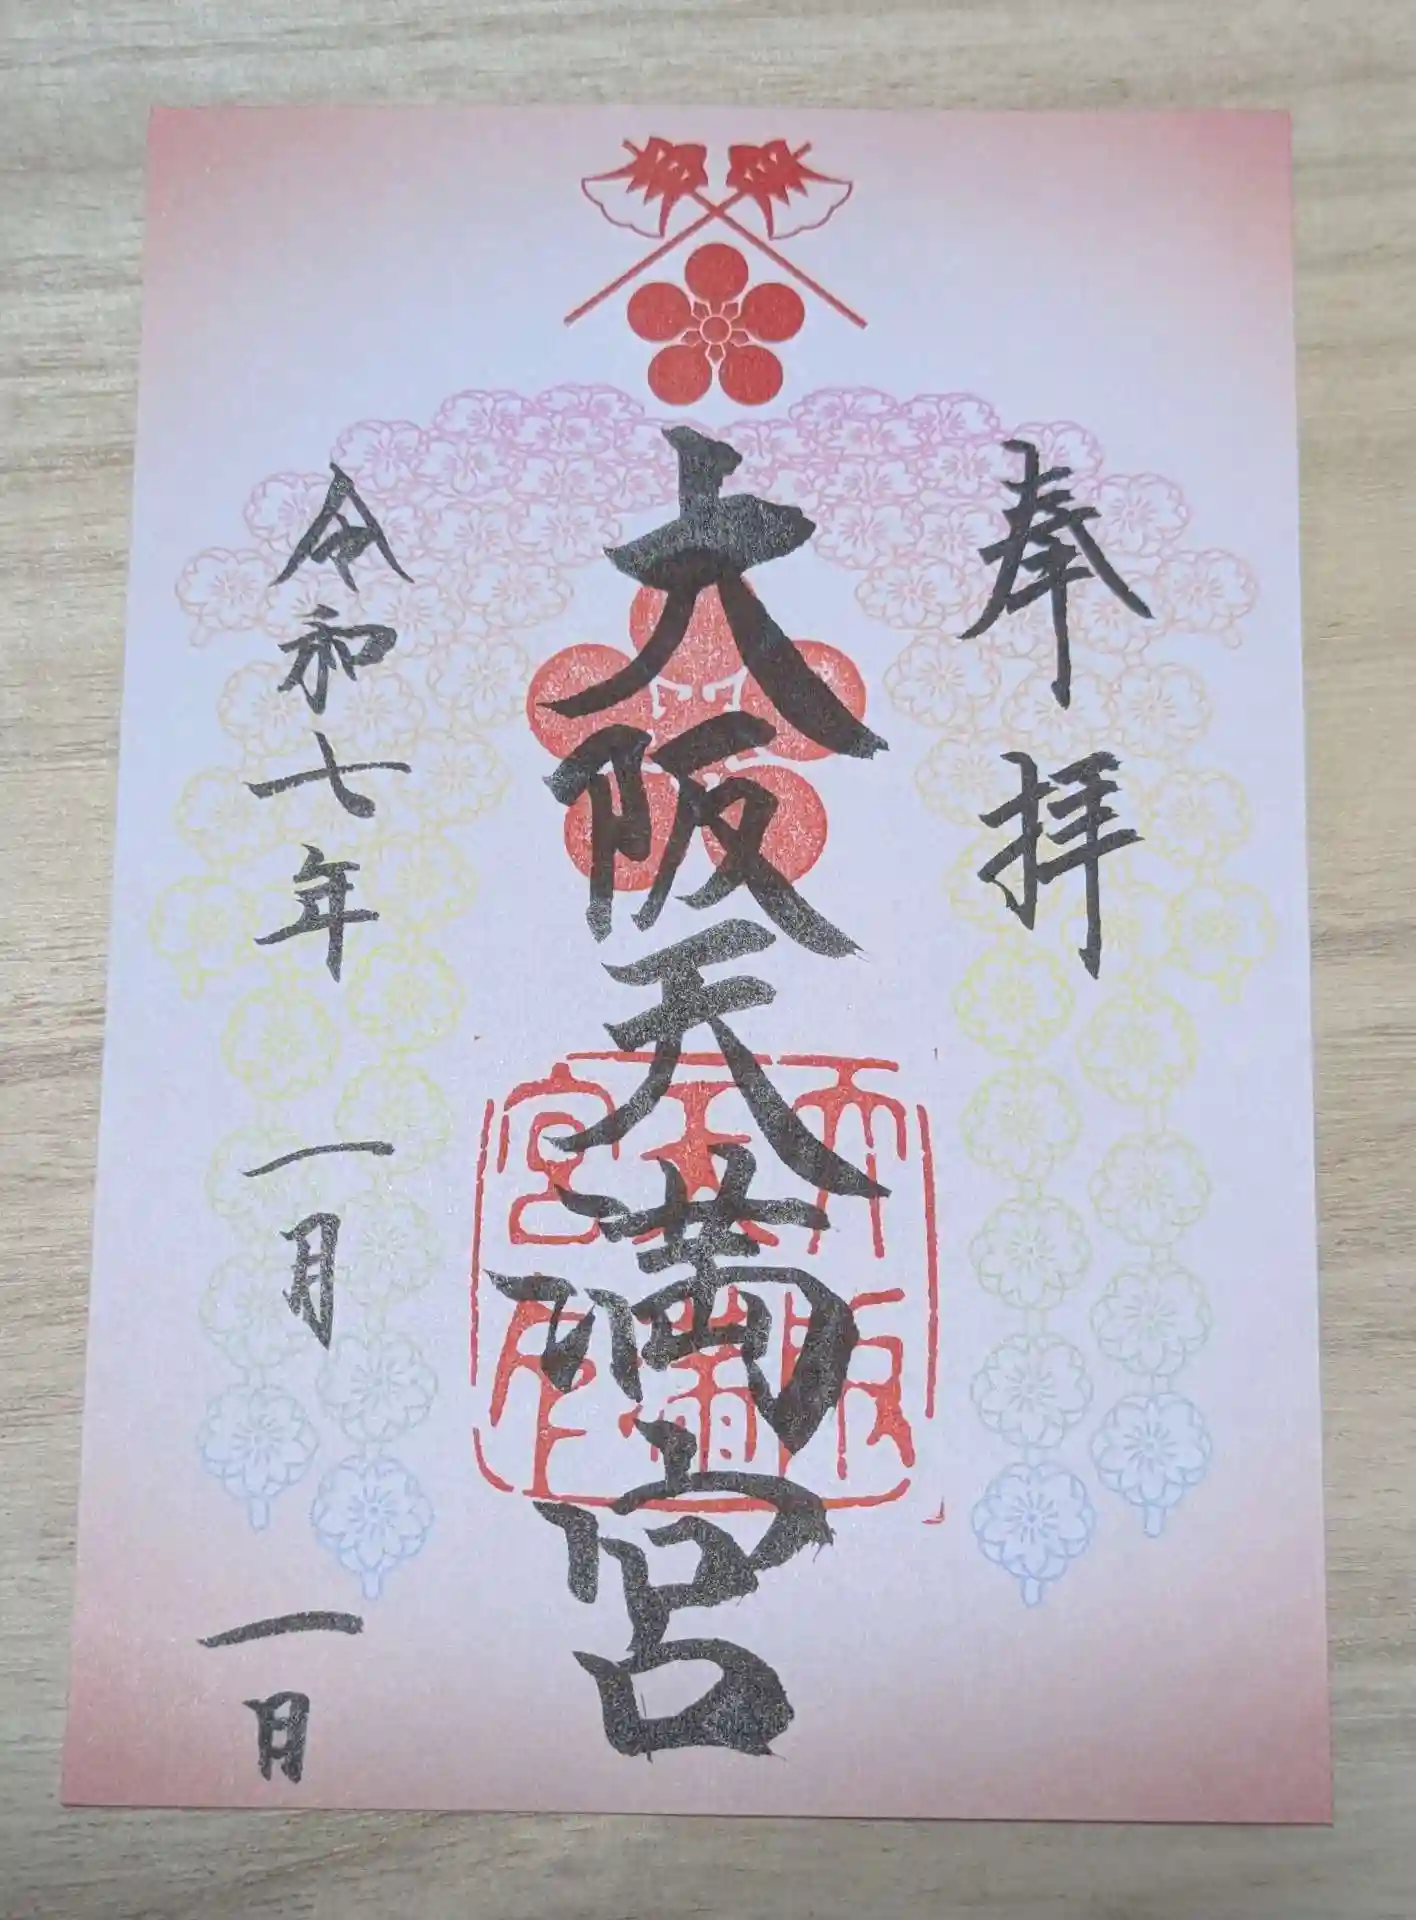 奉拝
大阪天満宮
令和七年一月一日
大阪天満宮印